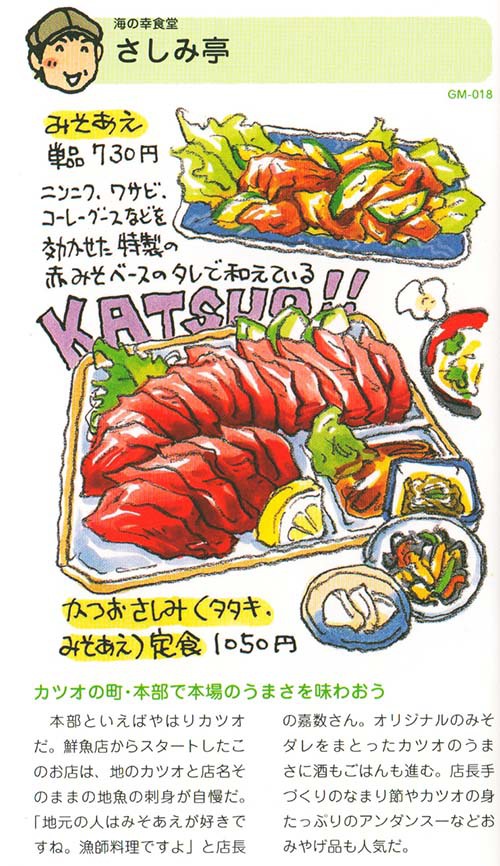 海の幸食堂
さしみ亭
GM-018
みそあえ
単品730円
ニンニク、ワサビ、
コーレーグースなどを
効かせた特製の
赤みそベースのタレで和えている
KATSUO!!
かつおさしみ(タタキ、
みそあえ)定食 1050円
カツオの町・本部で本場のうまさを味わおう
本部といえばやはりカツオ
だ。鮮魚店からスタートしたこ
のお店は、地のカツオと店名そ
のままの地魚の刺身が自慢だ。
「地元の人はみそあえが好きで
すね。漁師料理ですよ」と店長
の嘉数さん。オリジナルのみそ
ダレをまとったカツオのうま
さに酒もごはんも進む。店長手
づくりのなまり節やカツオの身
たっぷりのアンダンスーなどお
みやげ品も人気だ。